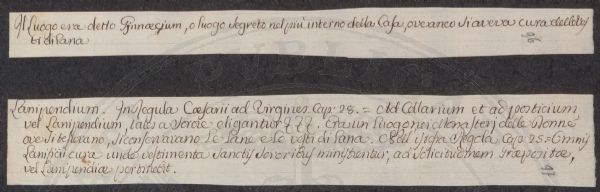 Il luogo era detto Gynnaegium, o luogo segreto nel più interno della Casa, ove anco si aveva cura delle ves
ti di lana
96
Lanipendium. In Regula Caesarii ad Virgines Cap. 28. = Ad Cellarium et ad posticium
vel Lanipendium, tales a Seniore eligantur &&&. Era un luogo nei Monasterj delle Donne
ove si tesevano, si conservavano le lane e le vesti di lana. Nell istessa Regola Cap. 25 = Omnis
Lanificii cura unde vestimenta Sanctis Sororibus ministrentur, ad solicitudinem Praepositae,
vel Lanipendiae pertinebit.
97